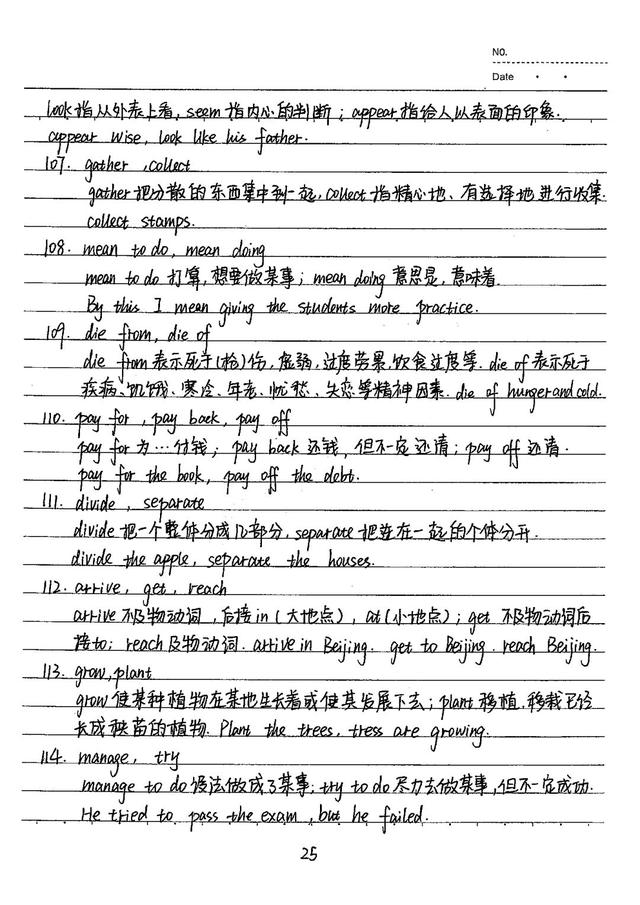 NO.
Date
look指从外表上看, seem指内心的判断; appear指给人以表面的印象.
appear wise, look like his father.
107. gather, collect
gather把分散的东西集中到一起, collect指精心地、有选择地进行收集.
collect stamps.
108. mean to do, mean doing
mean to do 打算, 想要做某事; mean doing 意思是, 意味着.
By this I mean giving the students more practice.
109. die from, die of
die from 表示死于(枪)伤, 虚弱, 过度劳累, 饮食过度等. die of 表示死于
疾病、饥饿、寒冷、年老、忧愁、失恋等精神因素. die of hunger and cold.
110. pay for, pay back, pay off
pay for 为…付钱; pay back 还钱, 但不一定还清; pay off 还清.
pay for the book, pay off the debt.
111. divide, separate
divide把一个整体分成几部分, separate把连在一起的个体分开.
divide the apple, separate the houses.
112. arrive, get, reach
arrive不及物动词, 后接in (大地点), at(小地点); get 不及物动词后
接to; reach及物动词. arrive in Beijing. get to Beijing. reach Beijing.
113. grow, plant
grow使某种植物在某地生长着或使其发展下去; plant移植. 移栽已经
长成秧苗的植物. Plant the trees, tress are growing.
114. manage, try
manage to do 设法做成了某事; try to do 尽力去做某事, 但不一定成功.
He tried to pass the exam, but he failed.
25